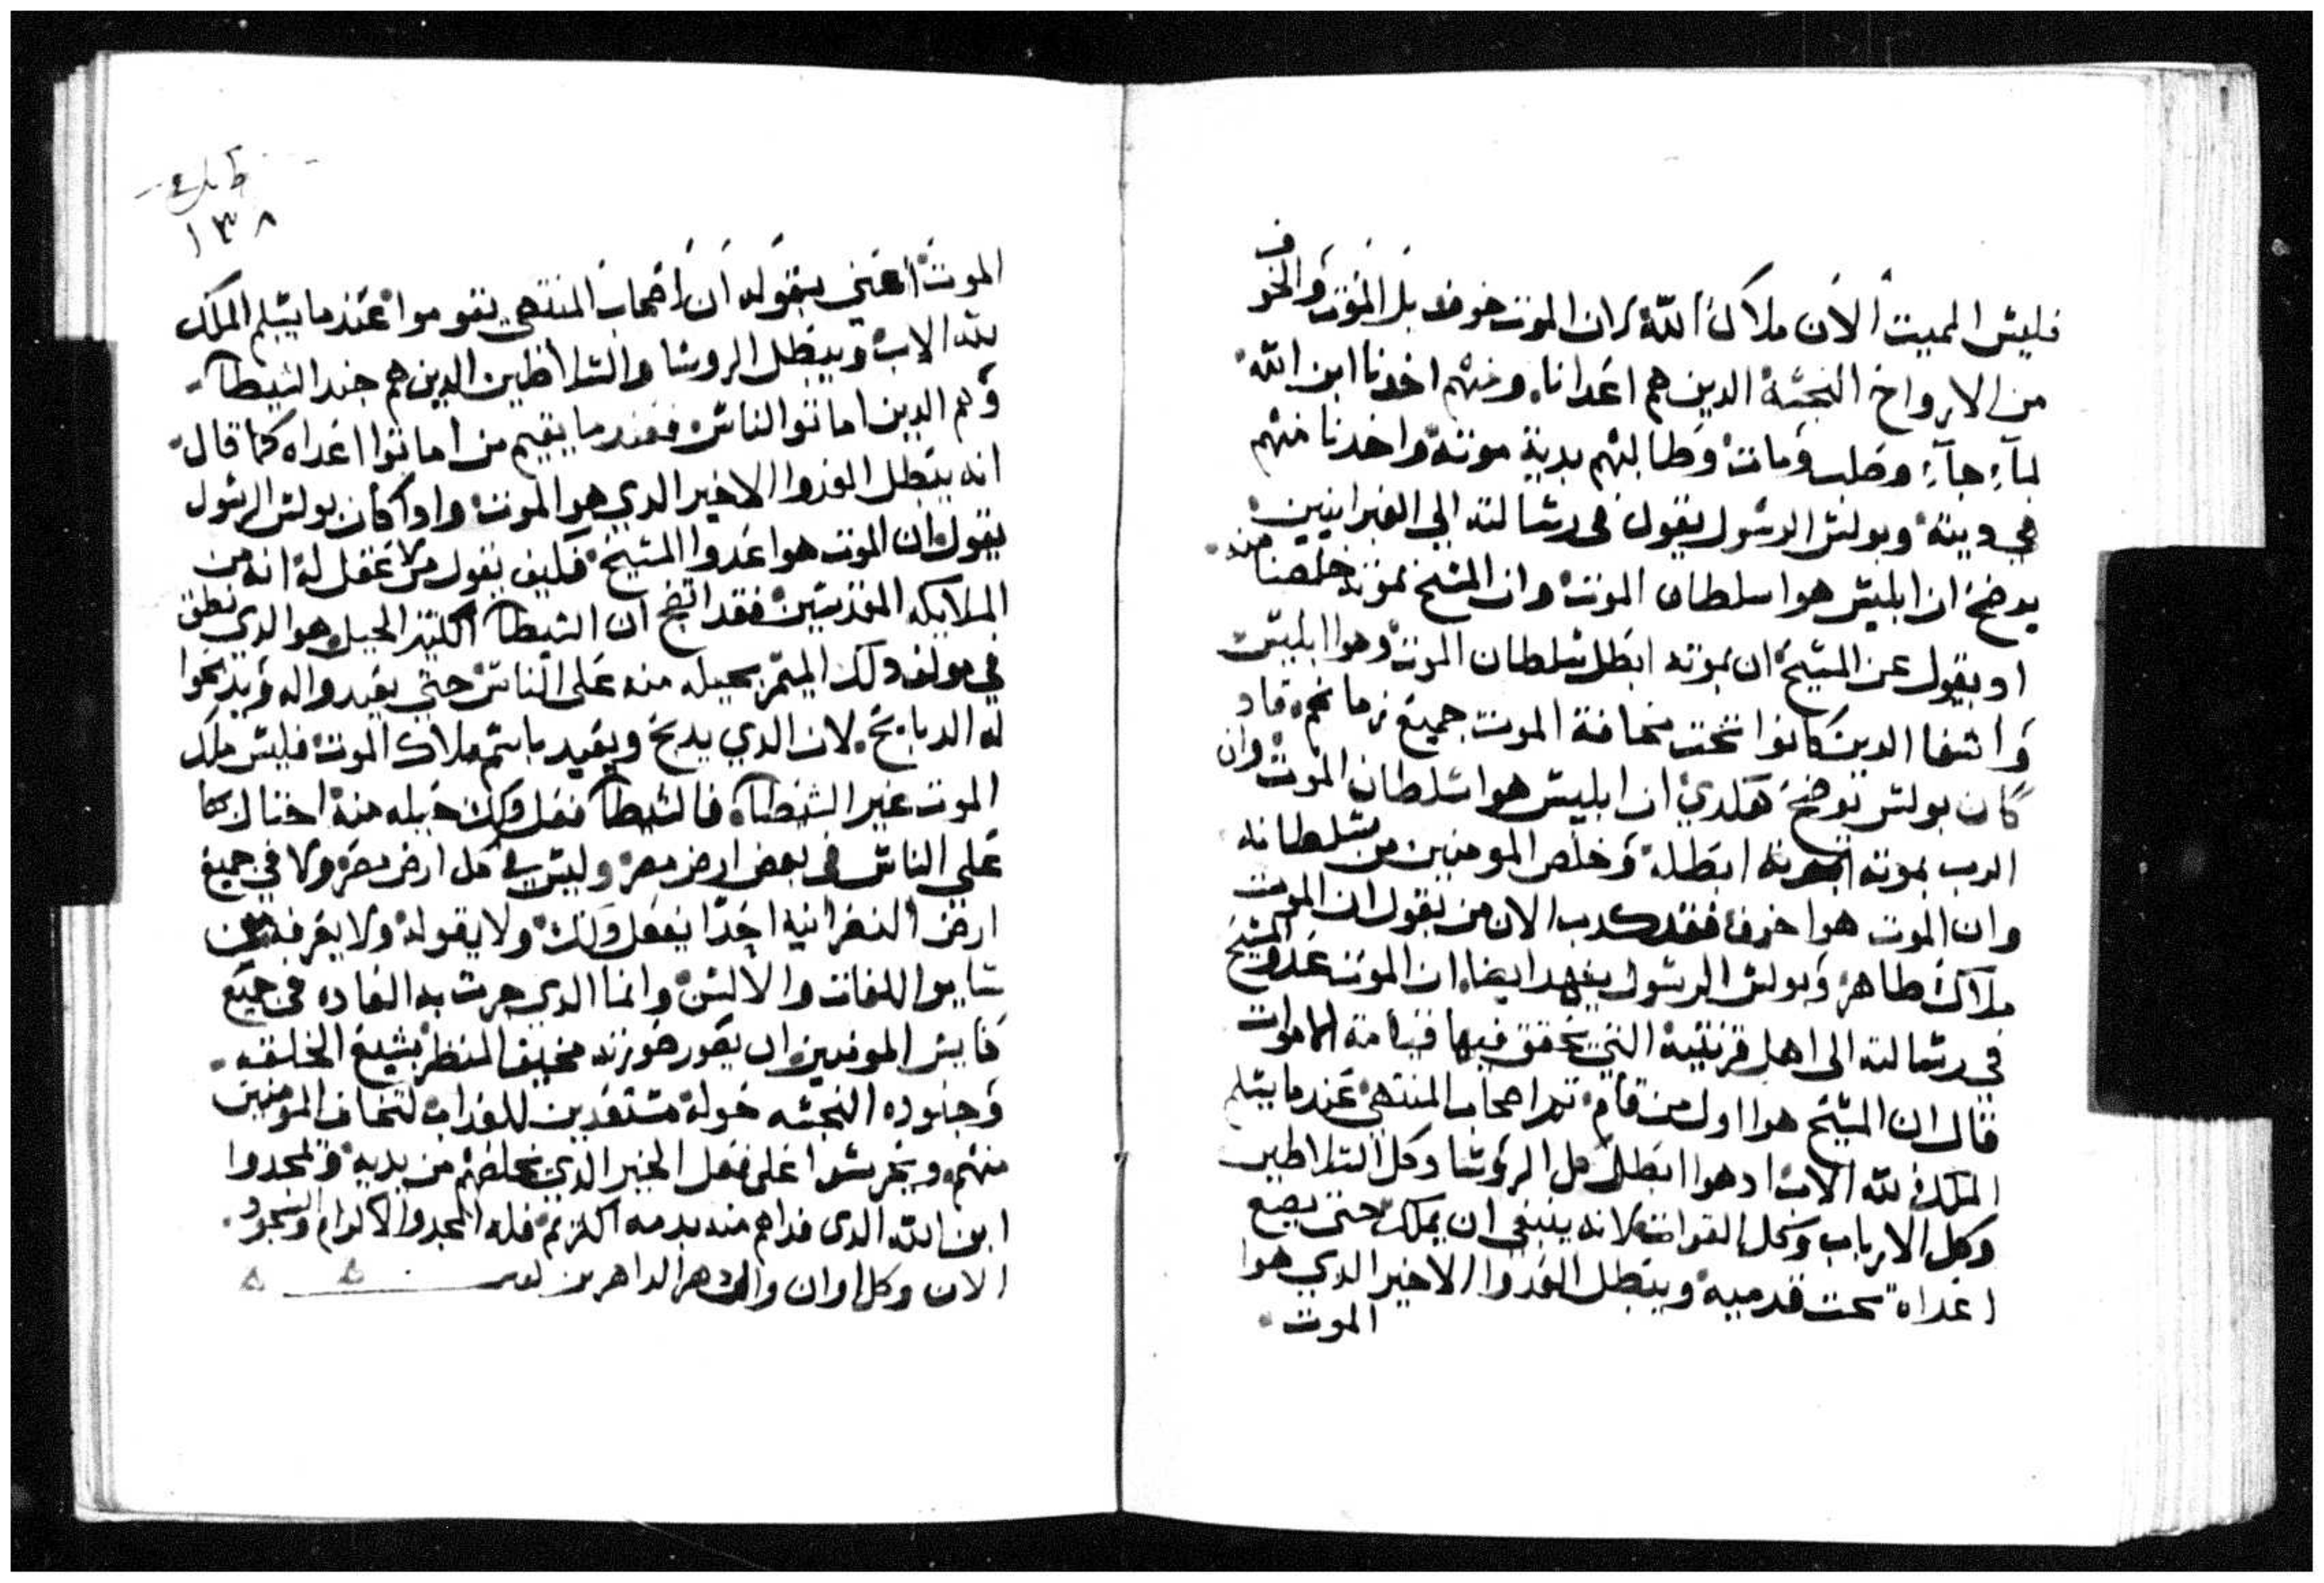 فليس المميت الان ملاك الله لان الموت خوف بل الموت والخوف
من الارواح النجسة الدين هم اعدانا ومنهم اخدنا ابن الله
لما جاء وصلب ومات وطالبهم بدية موته واخدنا منهم
في ديته وبولس الرسول يقول في رسالته الي العبرانيين
يوضح ان ابليس هوا سلطان الموت وان المسيح بموته خلصنا منه
اد يقول عن المسيح ان بموته ابطل سلطان الموت وهوا ابليس
واشفا الدين كانوا تحت مخافة الموت جميع زمانهم فاد
كان بولس يوضح هكدي ان ابليس هوا سلطان الموت وان
الرب بموته ابطله وخلص المومنين من سلطانه
وان الموت هوا خوف فقد كدب الان من يقول ان الموت
ملاك طاهر وبولس الرسول يشهد ايضا ان الموت عدو المسيح
في رسالته الى اهل قرنتية التي يحقق فيها قيامة الاموات
قال ان المسيح هوا اول من قام تم اصحاب المنتهى عندما يسلم
الملك لله الاب ادهوا ابطل كل الروسا وكل السلاطين
وكل الارباب وكل القوات لانه ينبغي ان يملك حتى يضع
اعداه تحت قدميه ويبطل العدوا الاخير الدي هوا
الموت
١٣٨
الموت اعني بقوله ان اصحاب المنتهي يقوموا عندما يسلم الملك
لله الاب ويبطل الروسا والسلاطين الدين هم جند الشيطان
وهم الدين اماتوا الناس فعندما يقيم من اماتوا اعداه كما قال
انه يبطل العدوا الاخير الدي هو الموت وادا كان بولس الرسول
يقول ان الموت هوا عدوا المسيح فكيف يقول من لا عقل له انه من
الملايكه المقدسين فقد اتضح ان الشيطان الكتير الحيل هو الدي نطق
في مولف دلك الميمر بحيله منه على الناس حتي يعيدوا له ويدبحوا
له الدبايح لان الدي يدبح ويعيد باسم ملاك الموت فليس ملك
الموت غير الشيطان فالشيطان فعل دلك حيله منه احتال بها
علي الناس في بعض ارض مصر وليس في كل ارض مصر ولا في جميع
ارض النصرانيه احدا يفعل دلك ولا يقوله ولا يعرفه في
ساير اللغات والالسن وانما الدي جرت به العاده في جميع
كنايس المومنين ان يصور صورته مخيف المنظر بشيع الخلقه
وجنوده النجسه حوله مستعدين للعداب لتخاف المومنين
منهم ويحرسوا على فعل الخير الدي يخلصهم من يديه ويمجدوا
ابن الله الدى فداهم منه بدمه الكريم فله المجد والاكرام والسجود
الان وكل اوان والى دهر الداهرين امين